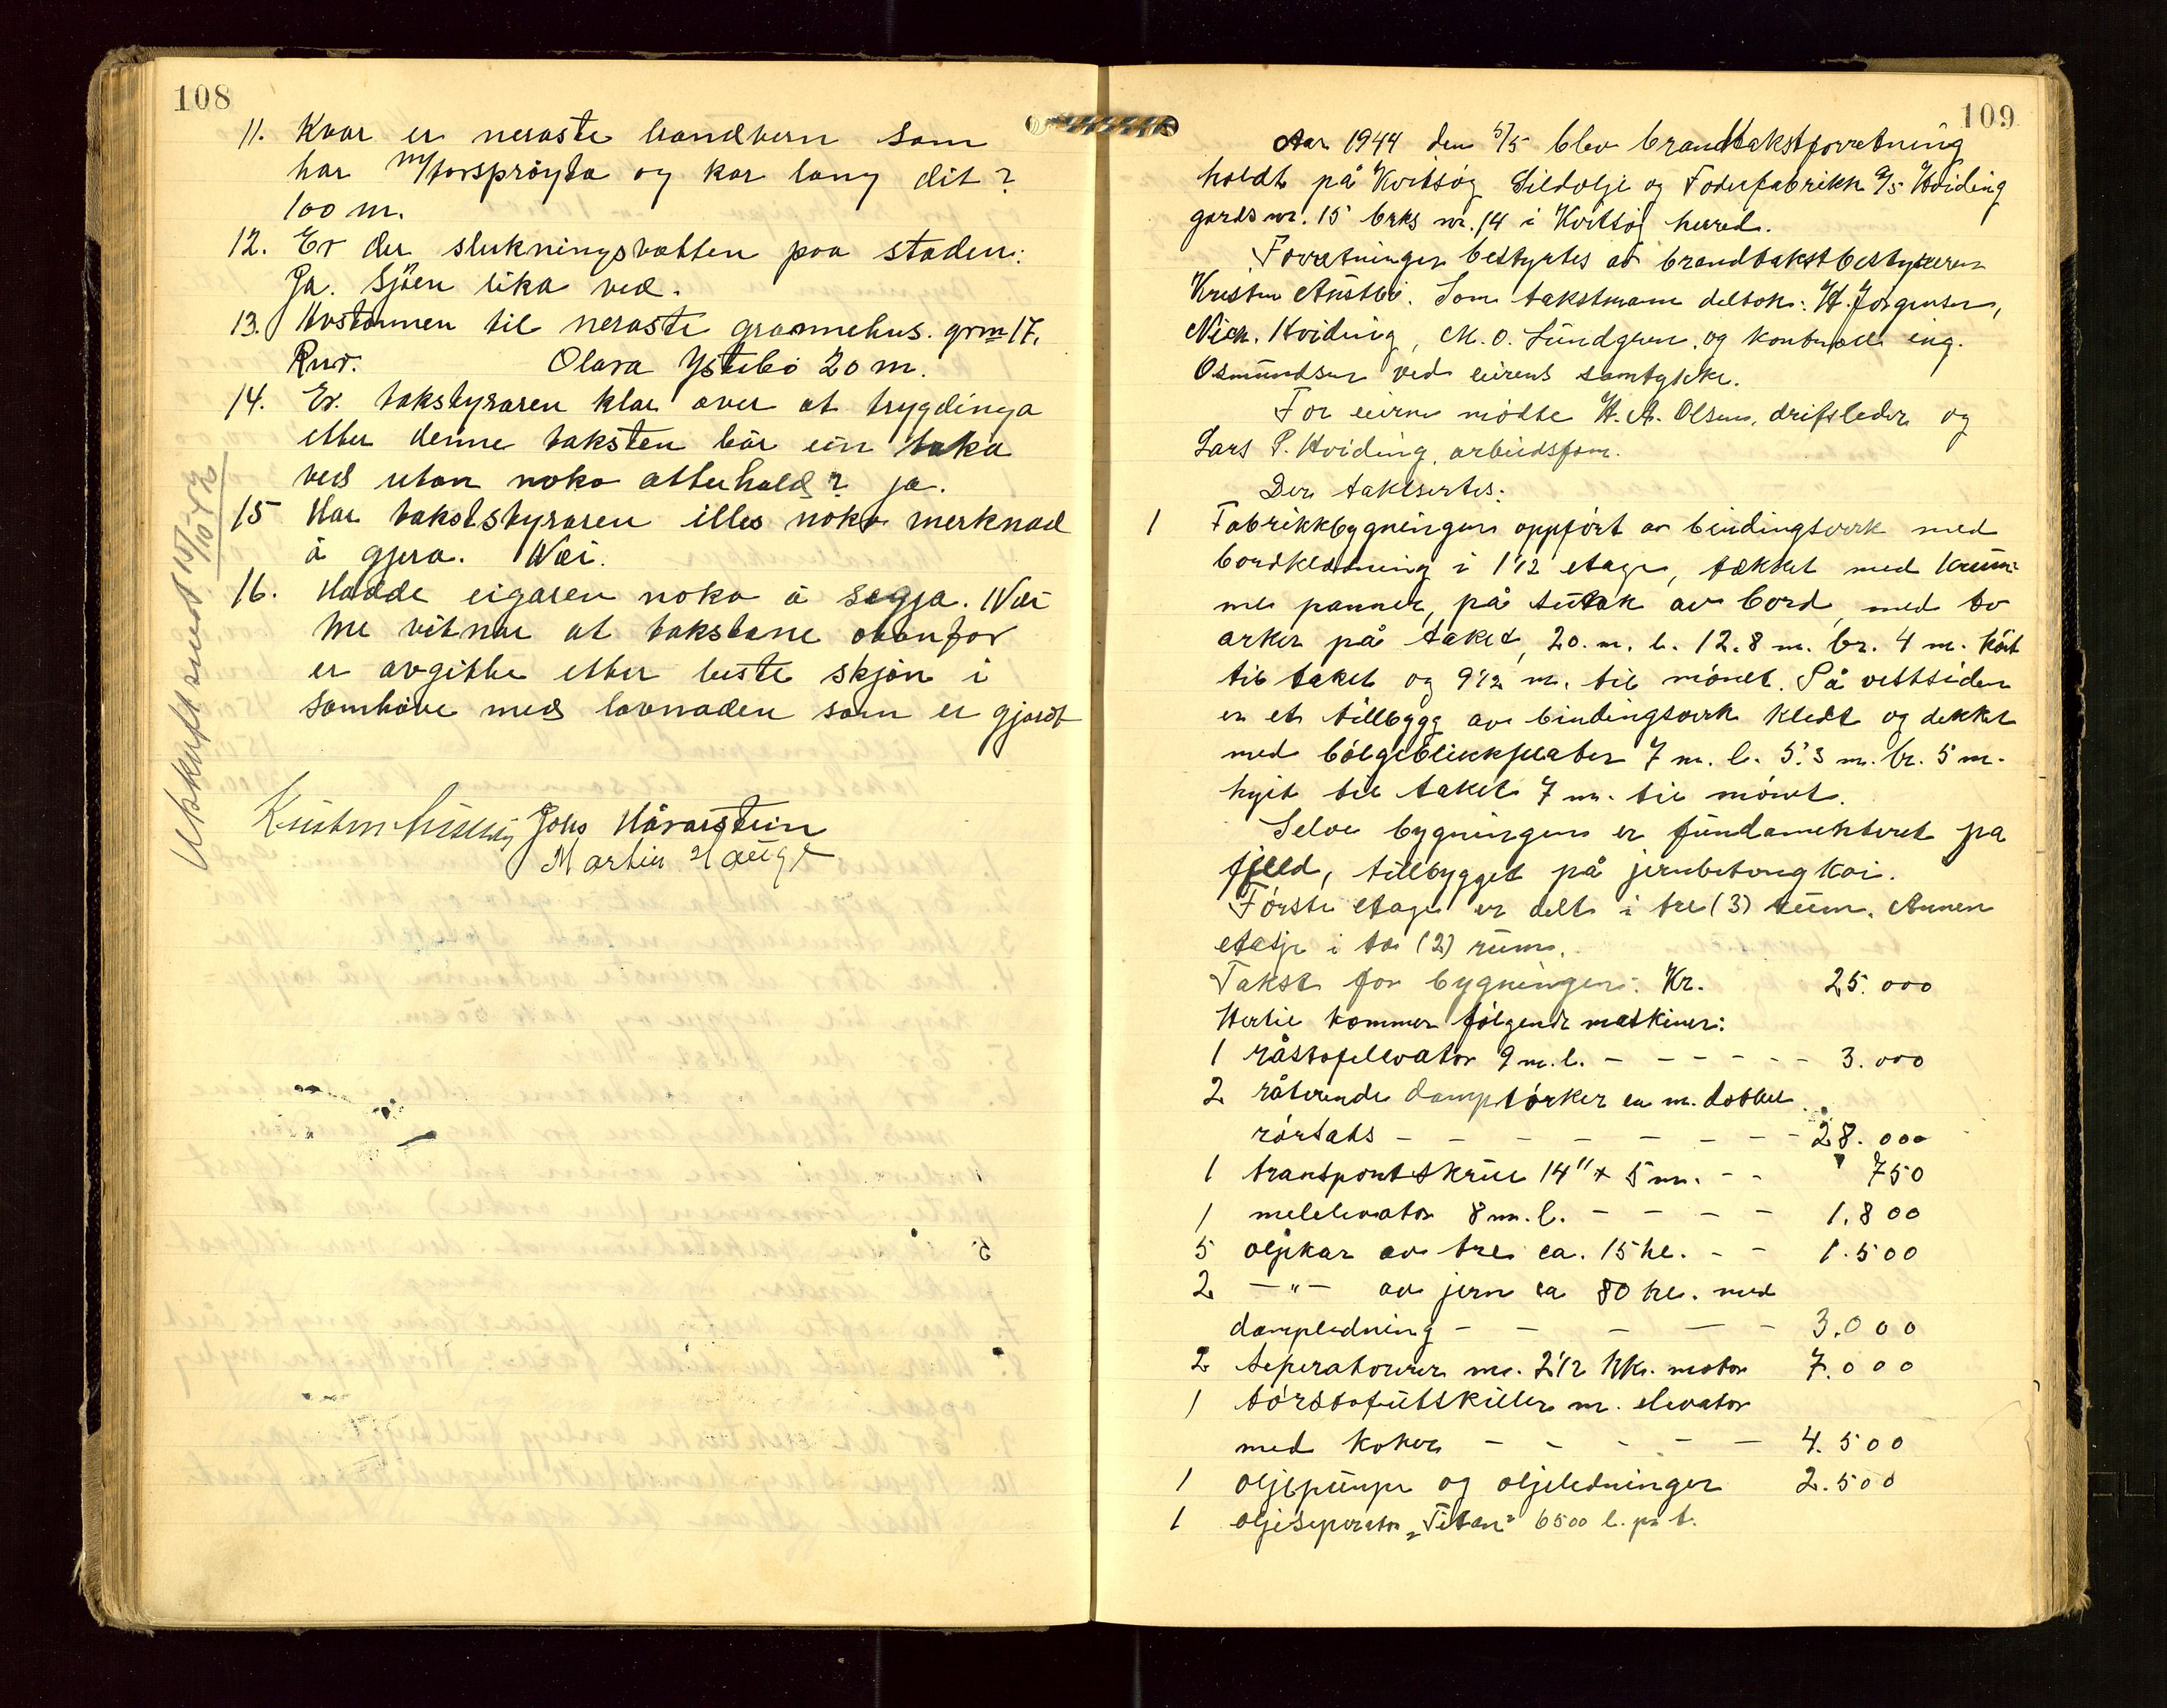 108
11. Kvar er neraste brandvern som
har m/torsprøyta og kor lang dit?
100 m.
12. Er der slukningsvatten paa staden:
Ja. Sjöen lika ved.
13. Avstannen til neraste grannehus. grm 17.
Olara Ystebö 20 m.
14. Er. takstyraren klar over at trygdinga
etter denne taksten bör ein taka
ved utan noko atterhald? ja.
15 Har takststyraren illes noko merknad
å gjera. Nei.
16. Hadde eigaren noko å segja. Nei
Me vitnar at takstane ovanfor
er avgitte etter beste skjön i
samhöve med lovnaden som er gjordt
Johs Håvarstein
Martin Hauge
Utskrift sendt 15/10-42
109
Aar 1944 den 5/5 blev brandtakstforretning
holdt på Kvitsøy Sildolje og Foderfabrikk A/S Hviding
gards nr. 15 bruks nr. 14 i Kvitsøy herred.
Forretningen bestyrtes av brandtakstbestyreren
Kristen Austbö. Som takstmenn deltok: H. Jørgensen,
Nick. Hviding, M. O. Lundgren. og kontroll ing.
Osmundsen ved eierens samtykke.
For eierne mödte H. A. Olsen, driftsleder og
Lars P. Hviding, arbeidsform.
Der taksertes:
1 Fabrikkbygningen oppfört av bindingsverk med
bordkledning i 1 1/2 etage, tekket med krum-
me panner, på sutak av bord, med to
arker på taket, 20. m. l. 12.8 m. br. 4 m. höit
til taket og 9 1/2 m. til mönet. På vestsiden
er et tillbygg av bindingsverk kledt og dekket
med bölgeblikkplater 7 m. l. 5.3 m. br. 5 m.
höit til taket 7 m. til mönet.
Selve bygningen er fundamentert på
fjeld, tillbygget på jernbetongkai.
Förste etage er delt i tre (3) rum. Annen
etasje i to (2) rum.
Takst for bygningen: Kr. 25.000
Hertil kommer fölgende maskiner:
1 råstofelevator 9 m. l. - - - - - - 3.000
2 roterende damptörker en m. dobbel
rörsats - - - - - - - - 28.000
1 transportskrue 14" x 5 m. - - 750
1 melelevator 8 m. l. - - - - - 1.800
5 oljekar av tre ca. 15 hl. - - 1.500
2 - " - av jern ca 80 hl. med
dampledning - - - - - 3.000
2 seperatourer m. 2 1/2 Hk. motor 7.000
1 törstofutskiller m. elevator
med koker - - - - - 4.500
1 oljepumpe og oljeledninger 2.500
1 oljeseperator "Titan" 6500 l. pr t.